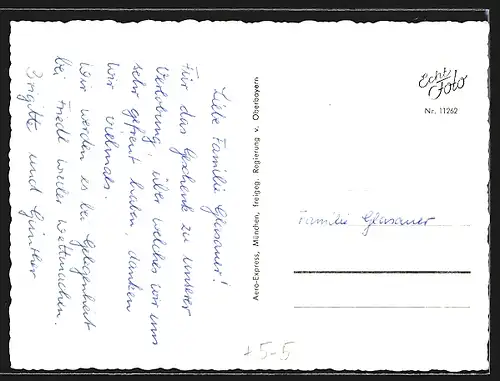 Liebe Familie Glasauer!
Für das Geschenk zu unserer
Verlobung, über welches wir uns
sehr gefreut haben, danken
wir vielmals.
Wir werden es bei Gelegenheit
bei Friedl wieder wettmachen.
Brigitte und Günther
Aero-Express, München, freigeg. Regierung v. Oberbayern
Echt
Foto
Nr. 11262
Familie Glasauer
+5-5